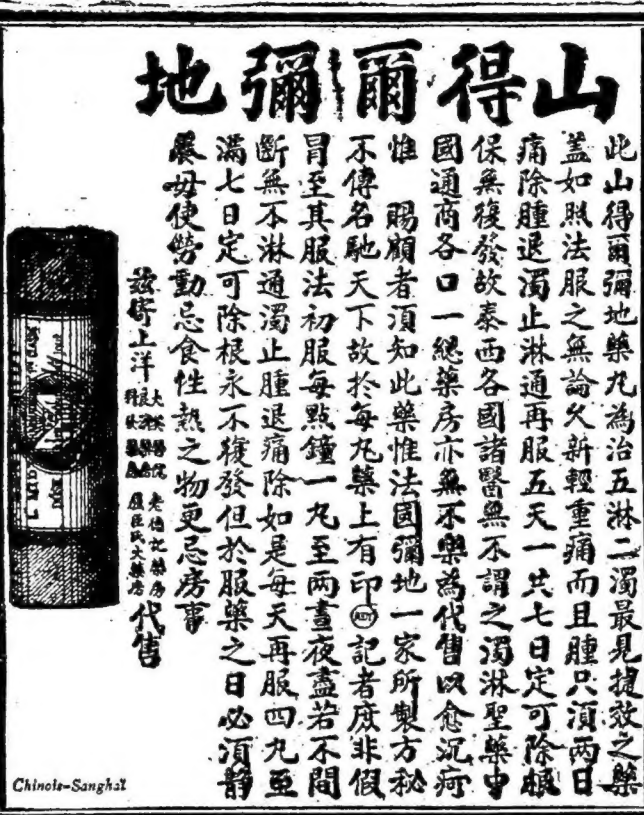 山得爾彌地
此山得爾彌地藥丸為治五淋二濁最見捷效之藥
蓋如照法服之無論久新輕重痛而且腫只須兩日
痛除腫退濁止淋通再服五天一共七日定可除根
保無復發故泰西各國諸醫無不謂之濁淋聖藥中
國通商各口一總藥房亦無不樂為代售以愈沉疴
惟 賜顧者須知此藥惟法國彌地一家所製方秘
不傳名馳天下故於每丸藥上有印 記者庶非假
冒至其服法初服每點鐘一丸至两晝夜盡若不間
斷無不淋通濁止腫退痛除如是每天再服四丸至
滿七日定可除根永不復發但於服藥之日必須静
養毋使勞動忌食性熱之物更忌房事
茲寄上洋
老德記藥房
屈臣氏大藥房
代售
Chinois-Sanghaï